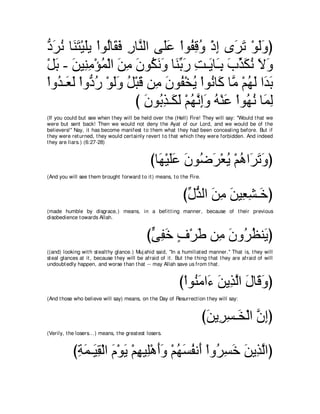 ﴿وَلَوْ تَرَى إِذْ وُقِفُواْ عَلَى النَّارِ فَقَالُواْ يلَيْتَنَا نُرَدُّ
وَلاَ نُكَذِّبَ بِـَايَـتِ رَبِّنَا وَنَكُونَ مِنَ الْمُؤْمِنِينَ - بَلْ
بَدَا لَهُمْ مَّا كَانُواْ يُخْفُونَ مِن قَبْلُ وَلَوْ رُدُّواْ لَعَـدُواْ
لِمَا نُهُواْ عَنْهُ وَإِنَّهُمْ لَكَـذِبُونَ ﴾
(If you could but see when they will be held over the (Hell) Fire! They will say: "Would that we
were but sent back! Then we would not deny the Ayat of our Lord, and we would be of the
believers!'' Nay, it has become manifest to them what they had been concealing before. But if
they were returned, they would certainly revert to that which they were forbidden. And indeed
they are liars.) (6:27-28)
﴿وَتَرَاهُمْ يُعْرَضُونَ عَلَيْهَا﴾
(And you will see them brought forward to it) means, to the Fire.
﴿خَـشِعِينَ مِنَ الذُّلِّ﴾
(made humble by disgrace,) means, in a befitting manner, because of their previous
disobedience towards Allah.
﴿يَنظُرُونَ مِن طَرْفٍ خَفِىٍّ﴾
((and) looking with stealthy glance.) Mujahid said, "In a humiliated manner.'' That is, they will
steal glances at it, because they will be afraid of it. But the thing that they are afraid of will
undoubtedly happen, and worse than that -- may Allah save us from that.
﴿وَقَالَ الَّذِينَ ءَامَنُواْ﴾
(And those who believe will say) means, on the Day of Resurrection they will say:
﴿إِنَّ الْخَـسِرِينَ﴾
(Verily, the losers...) means, the greatest losers.
﴿الَّذِينَ خَسِرُواْ أَنفُسَهُمْ وَأَهْلِيهِمْ يَوْمَ الْقِيَـمَةِ﴾